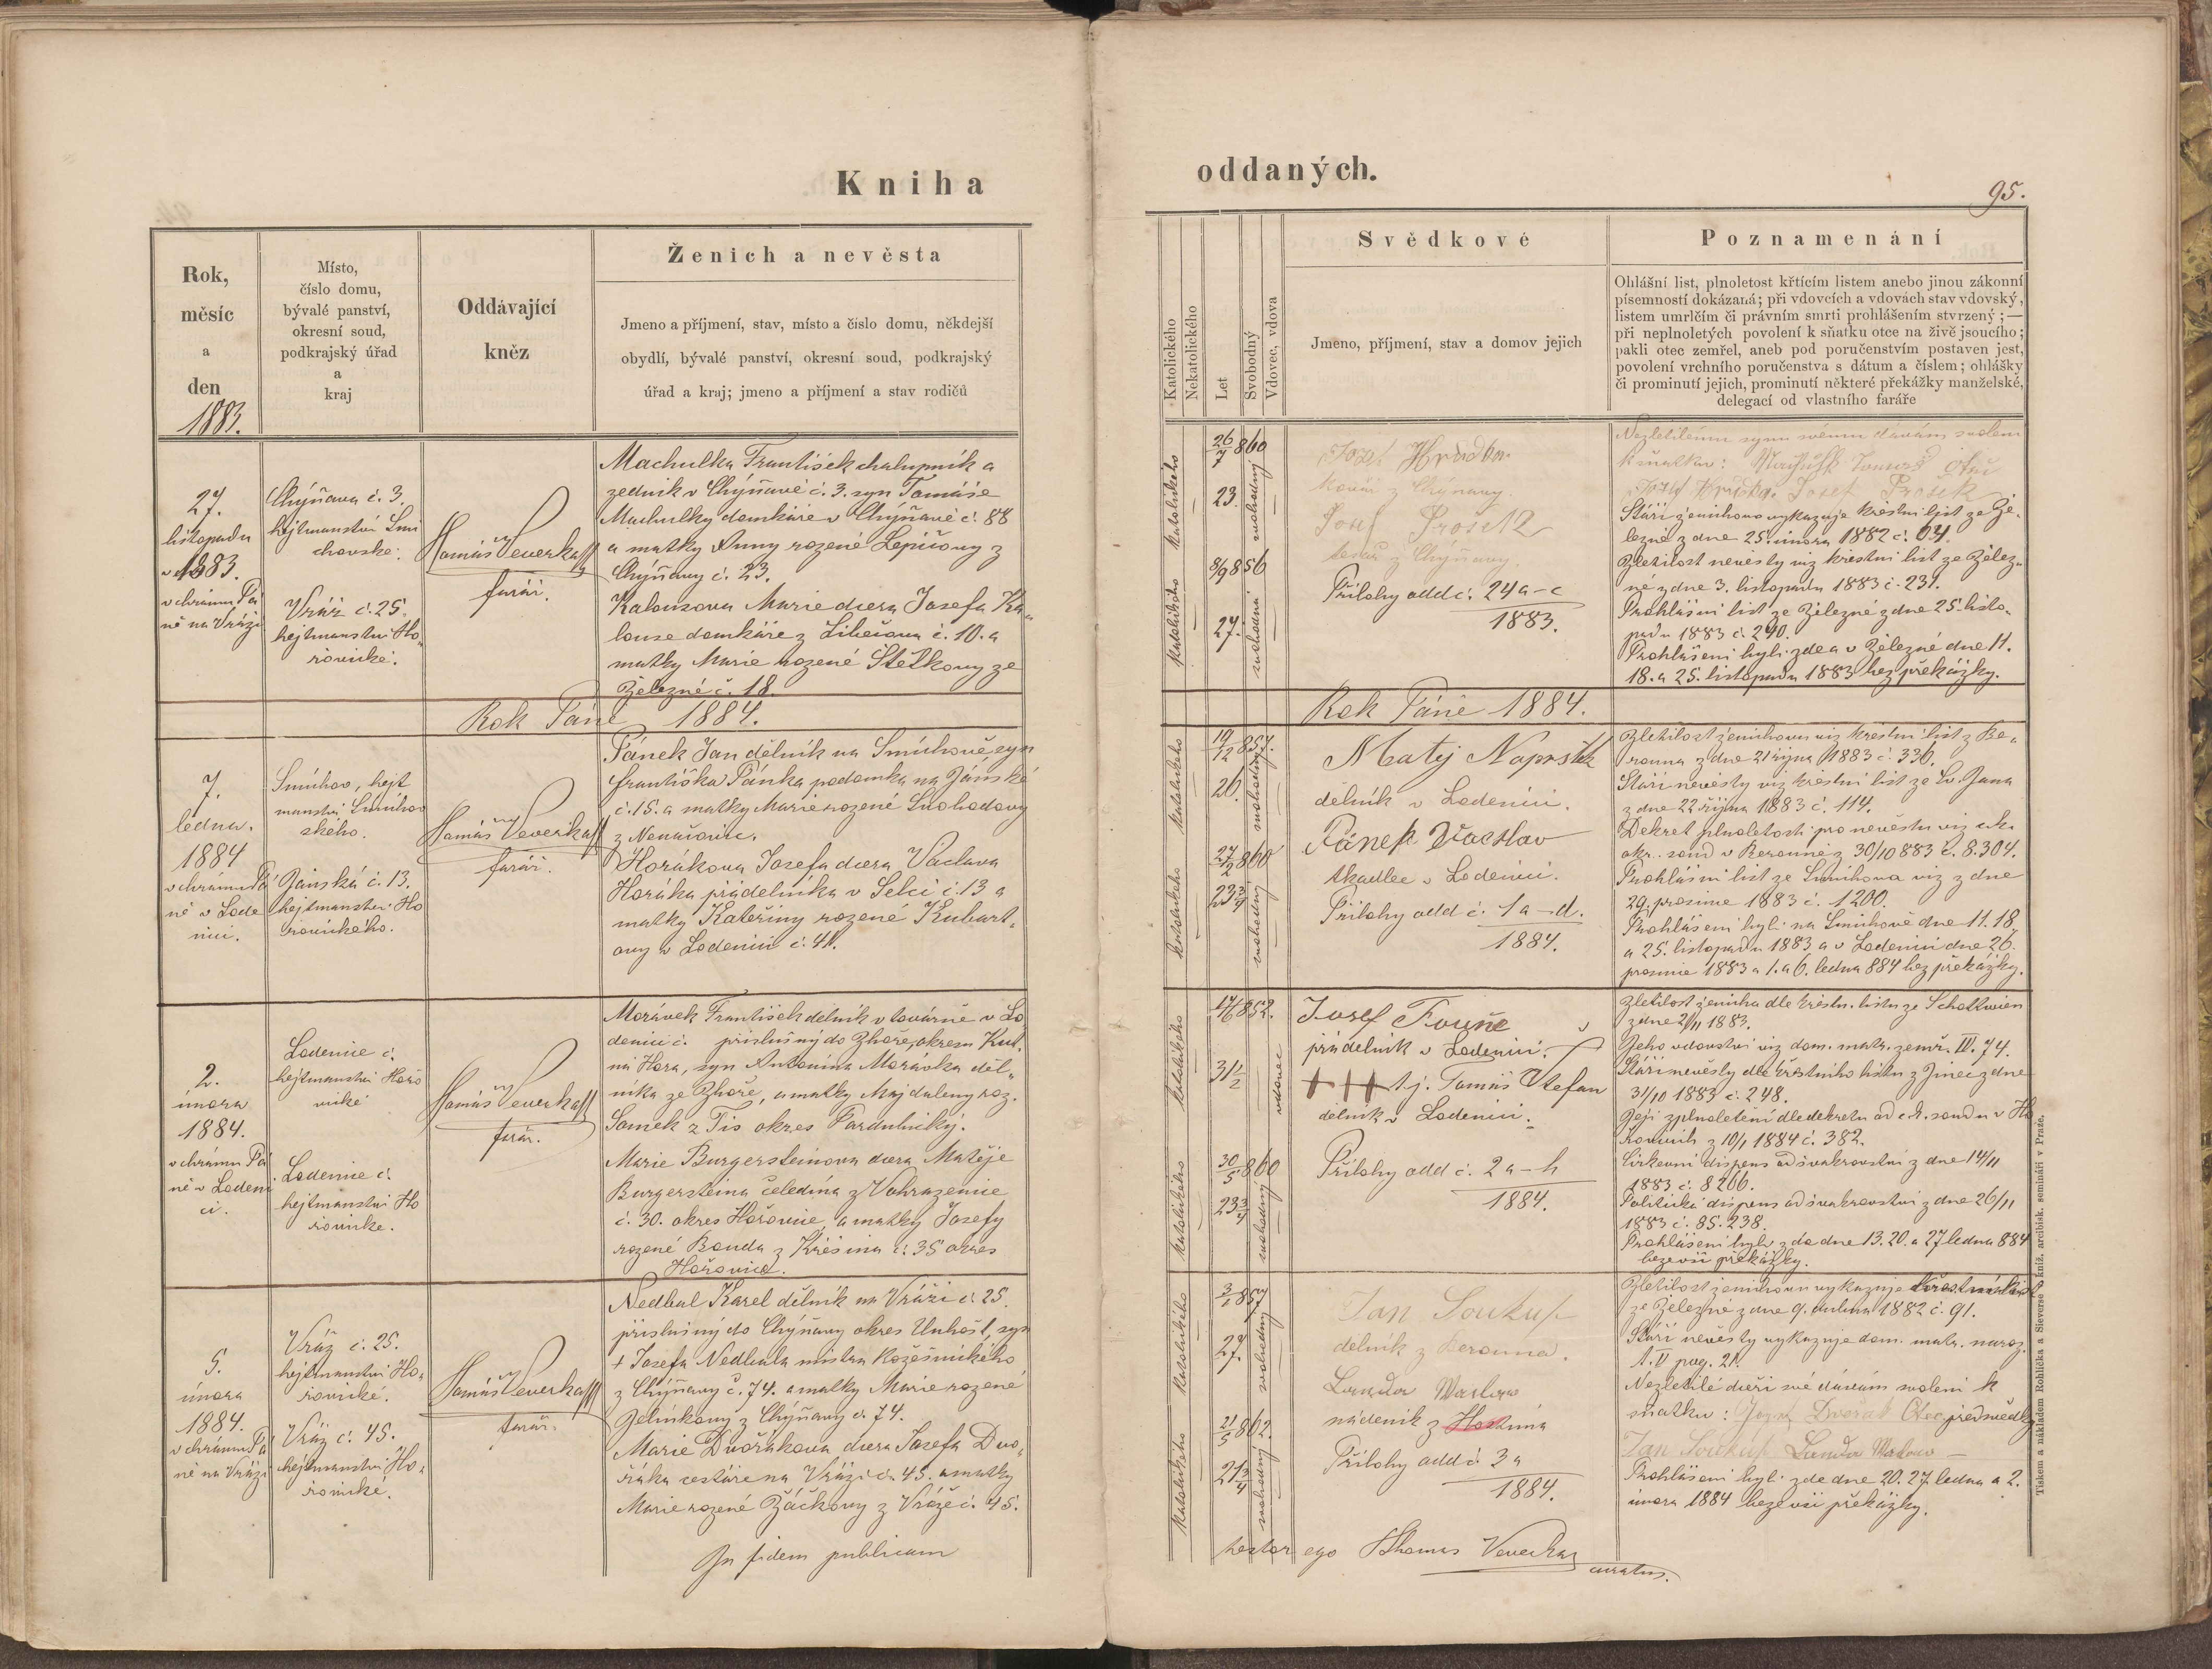 Kniha
oddaných.
95.
Rok,
měsíc
a
den
1883.
Místo,
číslo domu,
bývalé panství,
okresní soud,
podkrajský úřad
a
kraj
Oddávající
kněz
Ženich a nevěsta
Jmeno a příjmení, stav, místo a čislo domu, někdejší
obydlí, bývalé panství, okresní soud, podkrajský
úřad a kraj; jmeno a příjmení a stav rodičů
Katolického
Nekatolického
Let
Svobodný
Vdovec, vdova
Svědkové
Jmeno, příjmení, stav a domov jejich
Poznamenání
Ohlášní list, plnoletost křtícím listem anebo jinou zákonní
písemností dokázaná; při vdovcích a vdovách stav vdovský,
listem umrlčím či právním smrti prohlášením stvrzený; —
při neplnoletých povolení k sňatku otce na živě jsoucího;
pakli otec zemřel, aneb pod poručenstvím postaven jest,
povolení vrchního poručenstva s dátum a číslem; ohlášky
či prominutí jejich, prominutí některé překážky manželské,
delegací od vlastního faráře
27.
listopadu
1883.
v chrámu Pá
ně na Vráži
Chýňava č. 3.
hejtmanství Smi
chovske.
Vráž č. 25.
hejtmanství Ho„
řovické.
Tomáš Veverka
farář.
Machulka František chalupník a
zedník v Chýňavě č. 3. syn Tomáše
Machulky domkáře v Chýňavě č. 88
a matky Anny rozené Lepičovy z
Chýňavy č. 23.
Kalousova Marie dcera Josefa Ka„
louse domkáře z Libečova č. 10. a
matky Marie rozené Štětkovy ze
Železné č. 18.
katolického
26/7 860
23.
svobodný
katolického
8/9 856
27.
svobodná
Josef Hruška
kovář z Chýňavy.
Josef Prošek
z Chýňavy.
Přílohy odd č. 24 a–c
1883.
Nezletilému synu svému dávám svolení
k sňatku: Machulk Tomáš otec
Josef Hruška. Josef Prošek
Stáří ženichovo vykazuje křestní list ze Že„
lezné z dne 25. února 1882 č. 64.
Zletilost nevěsty viz křestní list ze Želez„
né z dne 3. listopadu 1883 č. 231.
Prohlášní list ze Železné z dne 25. listo„
padu 1883 č. 290.
Prohlášeni byli zde a v Železné dne 11.
18. a 25. listopadu 1883 bez překážky.
Rok Páně 1884.
Rok Páně 1884.
7.
ledna.
1884
v chrámu Pá
ně v Lode
nici.
Smíchov, hejt
manství Smíchov
ského.
Jánská č. 13.
hejtmanství Ho
řovického.
Tomáš Veverka
farář.
Pánek Jan dělník na Smíchově, syn
Františka Pánka podomka na Jánské
č. 15. a matky Marie rozené Svobodovy
z Nenačovic.
Horákova Josefa dcera Václava
Horáka přádelníka v Selci č. 13 a
matky Kateřiny rozené Kubart„
ovy v Lodenici č. 41.
katolického
19/12 857.
26.
svobodný
katolického
27/2 860
23 3/4
svobodný
Matěj Naprstek
dělník v Lodenici.
Pánek Vacslav
tkadlec v Lodenici.
Přílohy odd č. 1 a–d.
1884.
Zletilost ženichovu viz křestní list z Be„
rouna z dne 21 října 1883 č. 336.
Stáří nevěsty viz křestní list ze Sv. Jana
z dne 22 října 1883 č. 114.
Dekret plnoletosti pro nevěstu viz c. k.
okr. soud v Berouně z 30/10 883 č. 8.304.
Prohlášní list ze Smíchova viz z dne
29. prosince 1883 č. 1200.
Prohlášeni byli na Smíchově dne 11. 18.
a 25. listopadu 1883 a v Lodenici dne 26.
prosince 1883 a 1. a 6. ledna 884 bez překážky.
2.
února
1884.
v chrámu Pá
ně v Lodeni
ci.
Lodenice č.
hejtmanství Hořo
vické
Lodenice č.
hejtmanství Ho
řovicke.
Tomáš Veverka
farář.
Morávek František dělník v továrně v Lo
denici č. příslušný do Zhoře, okresu Kut„
ná Hora, syn Antonína Morávka děl„
níka ze Zhoře, a matky Majdaleny roz.
Samek z Tis okres Pardubický.
Marie Burgersteinova dcera Matěje
Burgersteina čeledína z Vohrazenice
č. 30. okres Hořovice, a matky Josefy
rozené Bouda z Křešina č. 35 okres
Hořovice.
katolického
17/6 852.
31 1/2
vdovec
katolického
30/5 860
23 3/4
svobodný
Josef Fouňe
přádelník v Lodenici.
+++ t. j. Tomáš Stefan
dělník v Lodenici.
Přílohy odd č. 2 a–h
1884.
Zletilost ženicha dle křestn. listu ze Schottwien
z dne 2/11 1883.
Jeho vdovství viz dom. matr. zemř. IV. 74.
Stáří nevěsty dle křestního listu z Jinec z dne
31/10 1883 č. 248.
Její zplnoletění dle dekretu od c. k. soudu v Ho
řovicích z 10/1 1884 č. 382.
Církevní dispens od švakrovství z dne 14/11
1883 č. 8266.
Politická dispens od švakrovství z dne 26/11
1883 č. 85.238.
Prohlášeni byli zde dne 13. 20. a 27 ledna 884
beze vší překážky.
5.
února
1884.
v chrámu Pá
ně na Vráži
Vráž č. 25.
hejtmanství Ho„
řovické.
Vráž č. 45.
hejtmanství Ho„
řovické.
Tomáš Veverka
farář.
Nedbal Karel dělník na Vráži č. 25.
příslušný do Chýňavy okres Unhošť, syn
+ Josefa Nedbala mistra kožešnického
z Chýňavy č. 74. a matky Marie rozené
Jelínkovy z Chýňavy č. 74.
Marie Dvořákova dcera Josefa Dvo„
řáka cestáře na Vráži č. 45. a matky
Marie rozené Žáčkovy z Vráže č. 45.
katolického
3/1 857
27.
svobodný
katolického
21/5 862.
21 3/4
svobodný
Jan Soukup
dělník z Berouna.
Landa Waclaw
nádeník z Hostimě
Přílohy odd č. 3 a
1884.
Zletilost ženichovu vykazuje křestní list
ze Železné z dne 9. dubna 1882 č. 91.
Stáří nevěsty vykazuje dom. matr. naroz.
A. V pag. 21.
Nezletilé dceři své dávám svolení k
sňatku: Josef Dvořák Otec před svědky
Jan Soukup Landa Waclaw —
Prohlášeni byli zde dne 20. 27. ledna a 2.
února 1884 beze vší překážky.
In fidem publicam
testor ego Thomas Veverka
curatus.
Tiskem a nákladem Rohlíčka a Sieverse kniž. arcibisk. semináři v Praze.